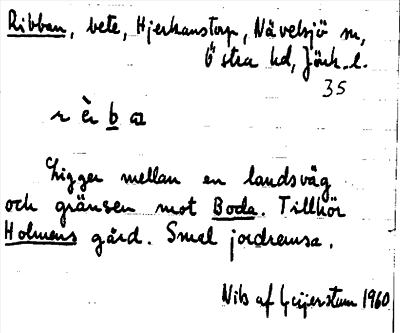 Ribban, bete, Hjerkanstorp, Nävelsjö sn,
Östra hd, Jönk. l.
35
r è b a
Ligger mellan en landsväg
och gränsen mot Boda. Tillhör
Holmens gård. Smal jordremsa.
Nils af Geijerstam 1960